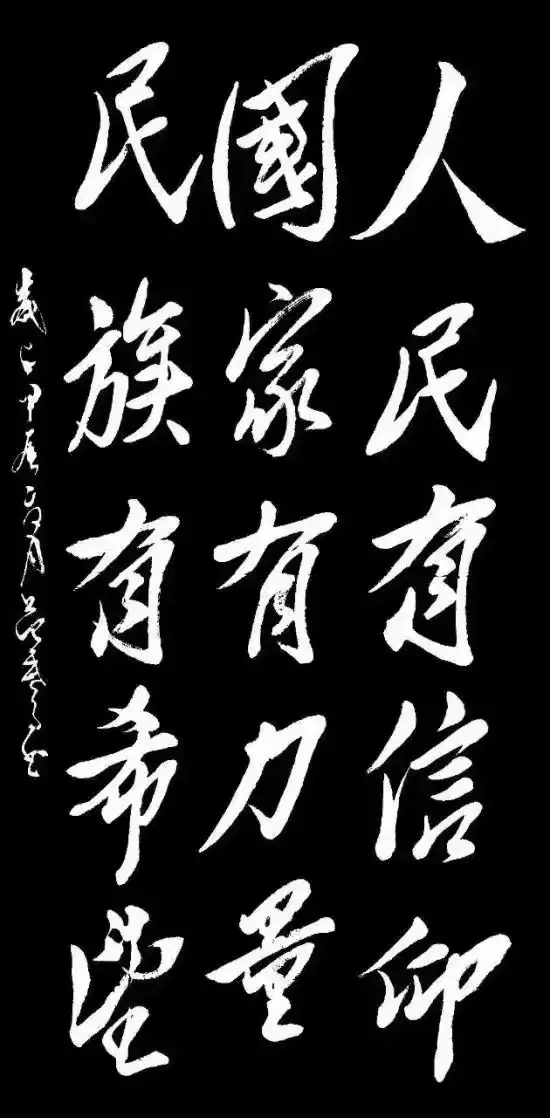 人民有信仰
國家有力量
民族有希望
歲在甲辰